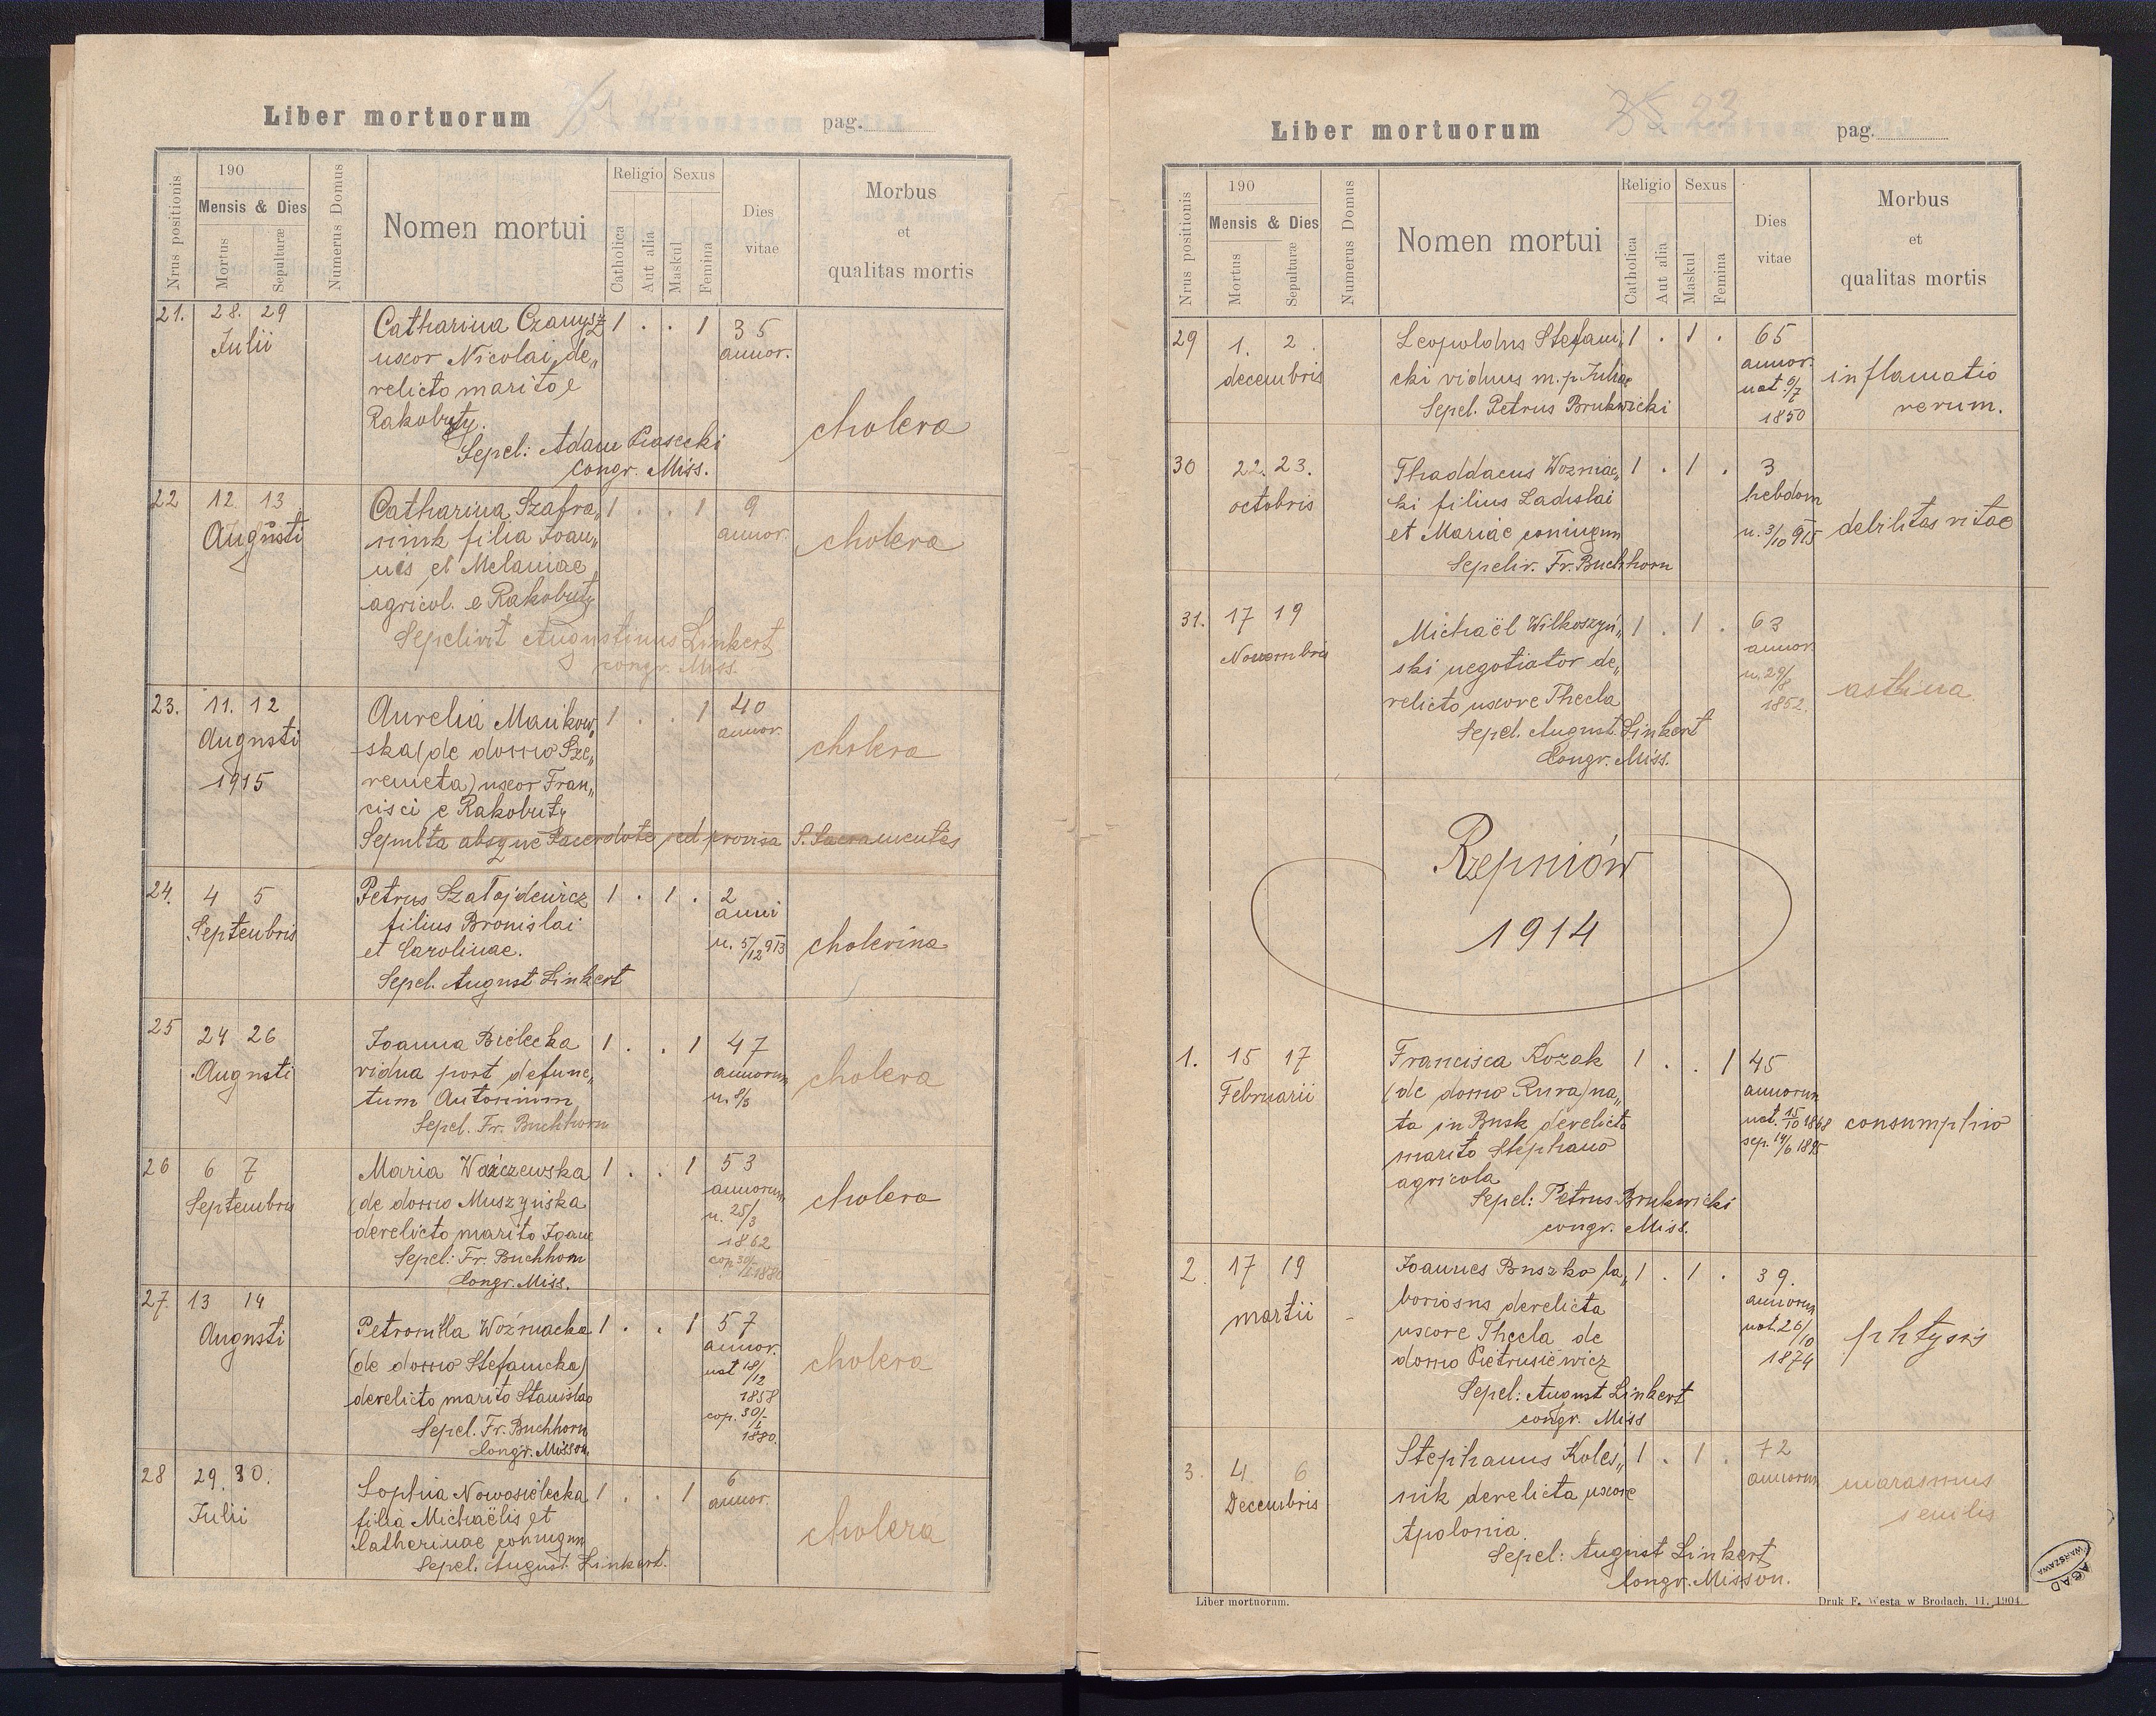 Liber mortuorum pag.
Nrus positionis
190
Mensis & Dies
Mortus
Sepulturæ
Numerus Domus
Nomen mortui
Religio Sexus
Catholica
Aut alia
Maskul
Femina
Dies
vitae
Morbus
et
qualitas mortis
21. 28. 29 Catharina 1 . . 1 35
Julii uxor Nicolai, de„ annor.
relicto marito e
Rakobuty. cholera
Sepel: Adam Piasecki
Congr. Miss.
22 12 13 Catharina Szafra„ 1 . . 1 9
Augusti filia Joan„ annor. cholera
nes et Melaniae
agricol. e Rakobuty
Sepelivit Augustinus Linkert
congr. Miss.
23. 11. 12 Aurelia Mańkow„ 1 . . 1 40
Augusti ska (de domo Sze„ annor. cholera
1915 remeta) uxor Fran„
cisci e Rakobuty
Sepulta absque Sacerdote, sed provisa S. Sacramentis
24. 4 5 Petrus Szałajdewicz 1 . 1 . 2
Septembris filius Bronislai anni
et Carolinae. n. 5/12 913 cholerina
Sepel. August Linkert
25 24 26 Joanna Bielecka 1 . . 1 47
Augusti vidua post defunc„ annorum cholera
tum Antonium n. 8/3
Sepel. Fr. Buchhorn
26 6 7 Maria 1 . . 1 53
Septembris (de domo Muszyńska annorum cholera
derelicto marito Joane n. 25/3
Sepel: Fr. Buchhorn 1862
Congr. Miss. cop.
27. 13 14 Petronilla Woźniacka 1 . . 1 57
Augusti (de domo Stefanicka) annor. cholera
derelicto marito Stanislao nat 18/12
Sepel. Fr. Buchhorn 1858
Congr. Misson. cop. 30/1
1880.
28 29. 30. Sophia Nowosielecka 1 . . 1 6
Julii filia Michaëlis et annor.
Catherinae coniugum cholera
Sepel. August Linkert.
23
Liber mortuorum pag.
Nrus positionis
190
Mensis & Dies
Mortus
Sepulturæ
Numerus Domus
Nomen mortui
Religio Sexus
Catholica
Aut alia
Maskul
Femina
Dies
vitae
Morbus
et
qualitas mortis
29 1. 2. Leopoldus Stefani„ 1 . 1 . 65
decembris cki viduus m. p. Julia annor. inflamatio
Sepel. Petrus Brukwicki nat. 6/7 rerum.
1850
30 22. 23. Thaddaeus Wozniac„ 1 . 1 . 3
octobris ki filius Ladislai hebdom
et Mariae coniugum n. 3/10 915 debilitas vitae
Sepeliv. Fr. Buchhorn
31. 17 19 Michaël Wilkoszyń„ 1 . 1 . 63
Novembris ski negotiator de„ annor.
relicto uxore Thecla n. 29/8 asthma
Sepel. August. Linkert 1852.
Congr. Miss.
Rzepniów
1914
1. 15 17 Francisca Kozak 1 . . 1 45
Februarii (de domo Rura) na„ annorum
ta in Busk derelicto nat. 15/10 1868 consumptio
marito Stephano cop. 14/6 1895
agricola
Sepel: Petrus Brukwicki
congr. Miss.
2. 17 19 Joannes Buszko la„ 1 . 1 . 39.
martii boriosus derelicta annorum
uxore Thecla de nat. 26/10 phtysis
domo Pietrusiewicz 1874
Sepel: August Linkert
congr. Miss
3. 4. 6 Stephanus Koles„ 1 . 1 . 72
Decembris nik derelicta uxore annorum marasmus
Apolonia. senilis
Sepel: August Linkert
Congr. Misson.
Liber mortuorum.
Druk F. Westa w Brodach, 11. 1904.
AGAD
WARSZAWA